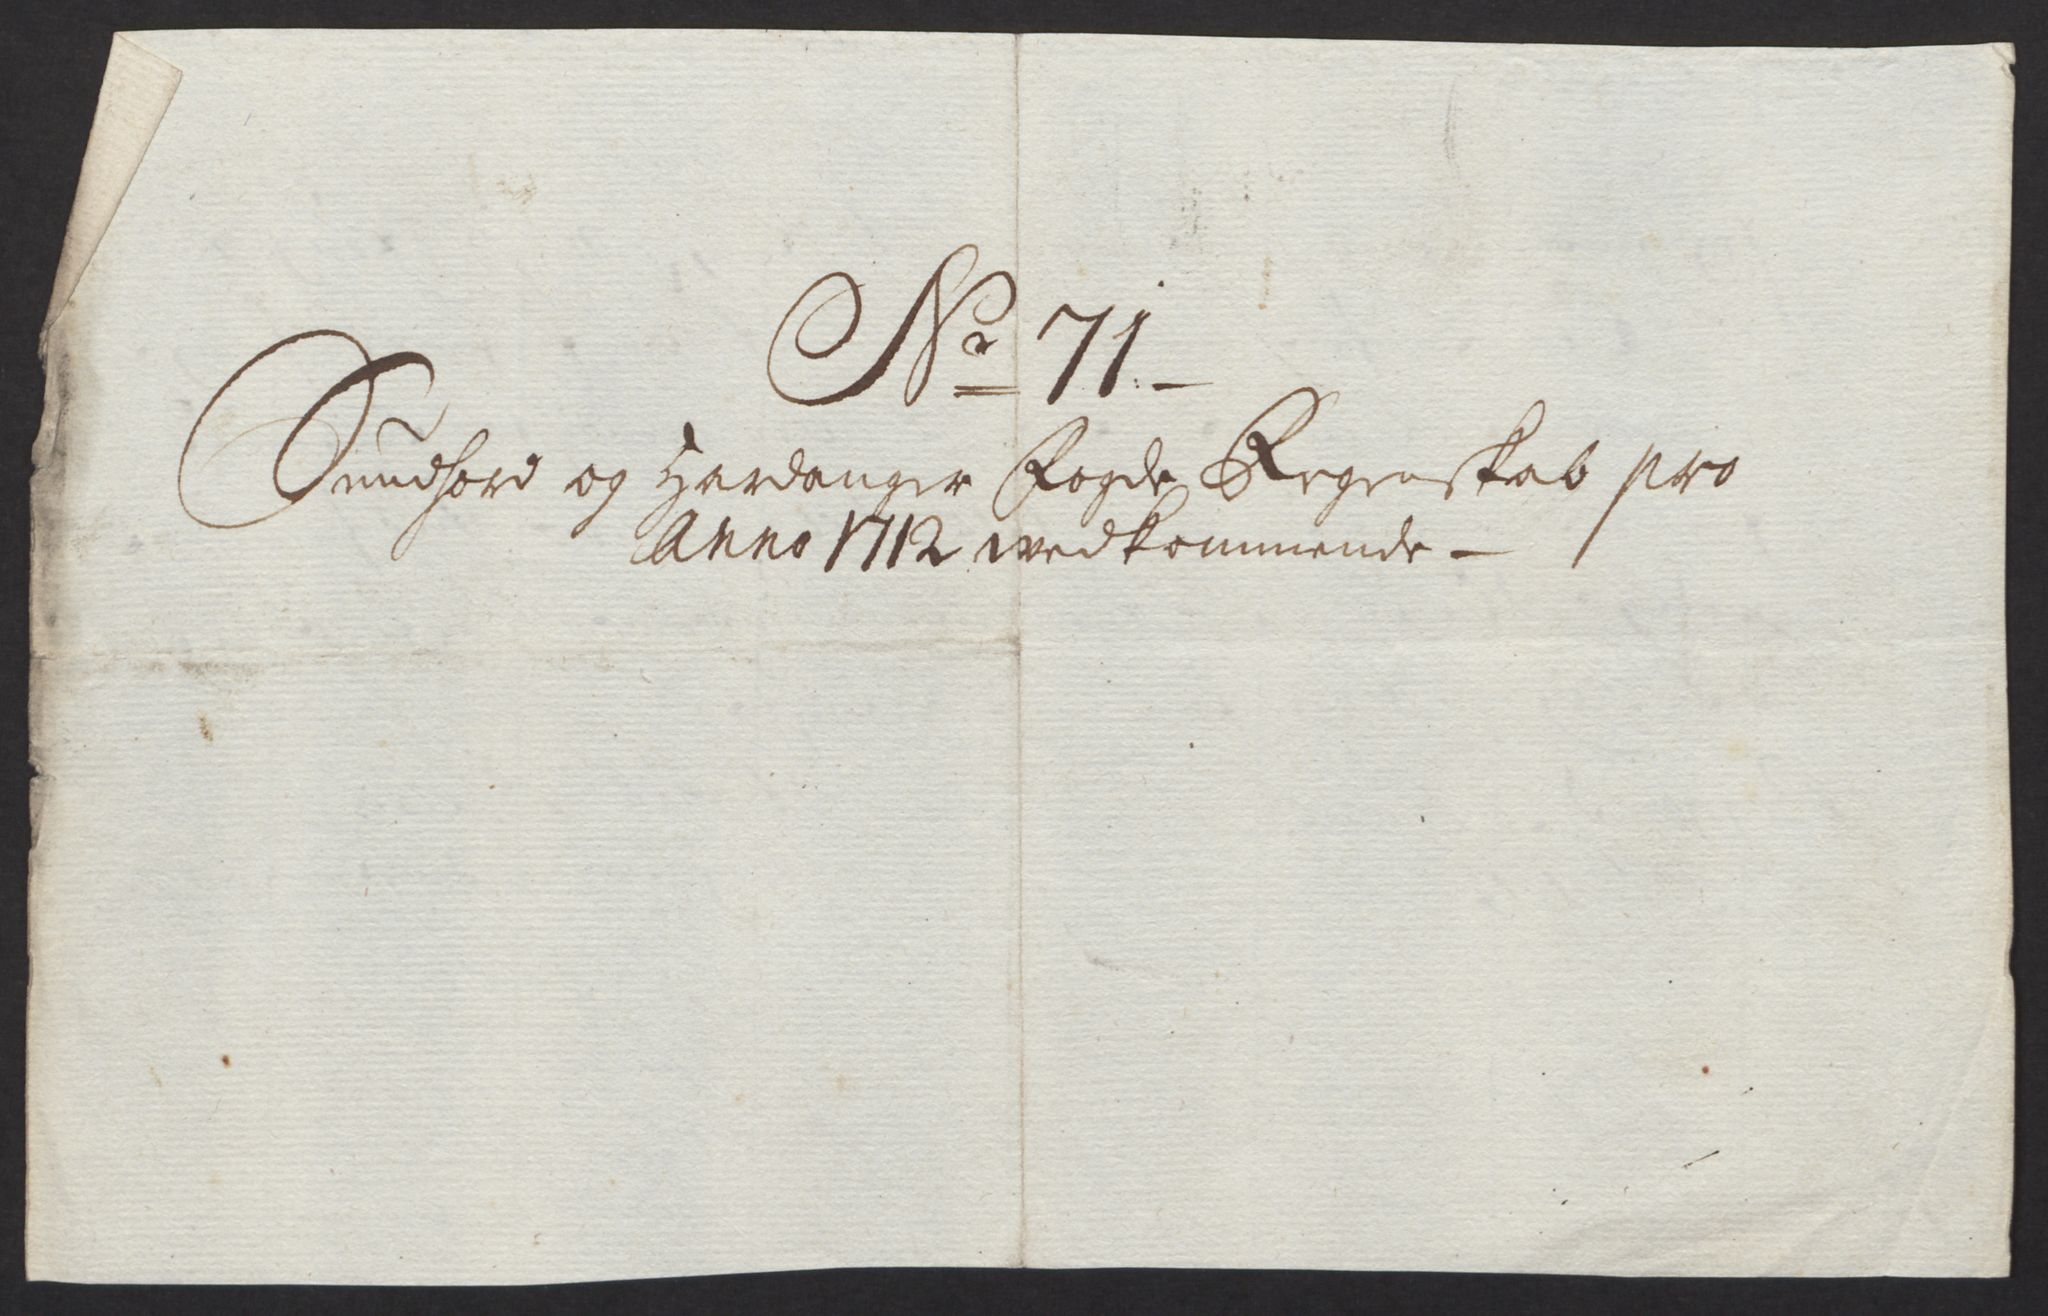 No 71. -
Sundhord og Hardanger Fogde Regenskab pro
Anno 1712 wedkommende -